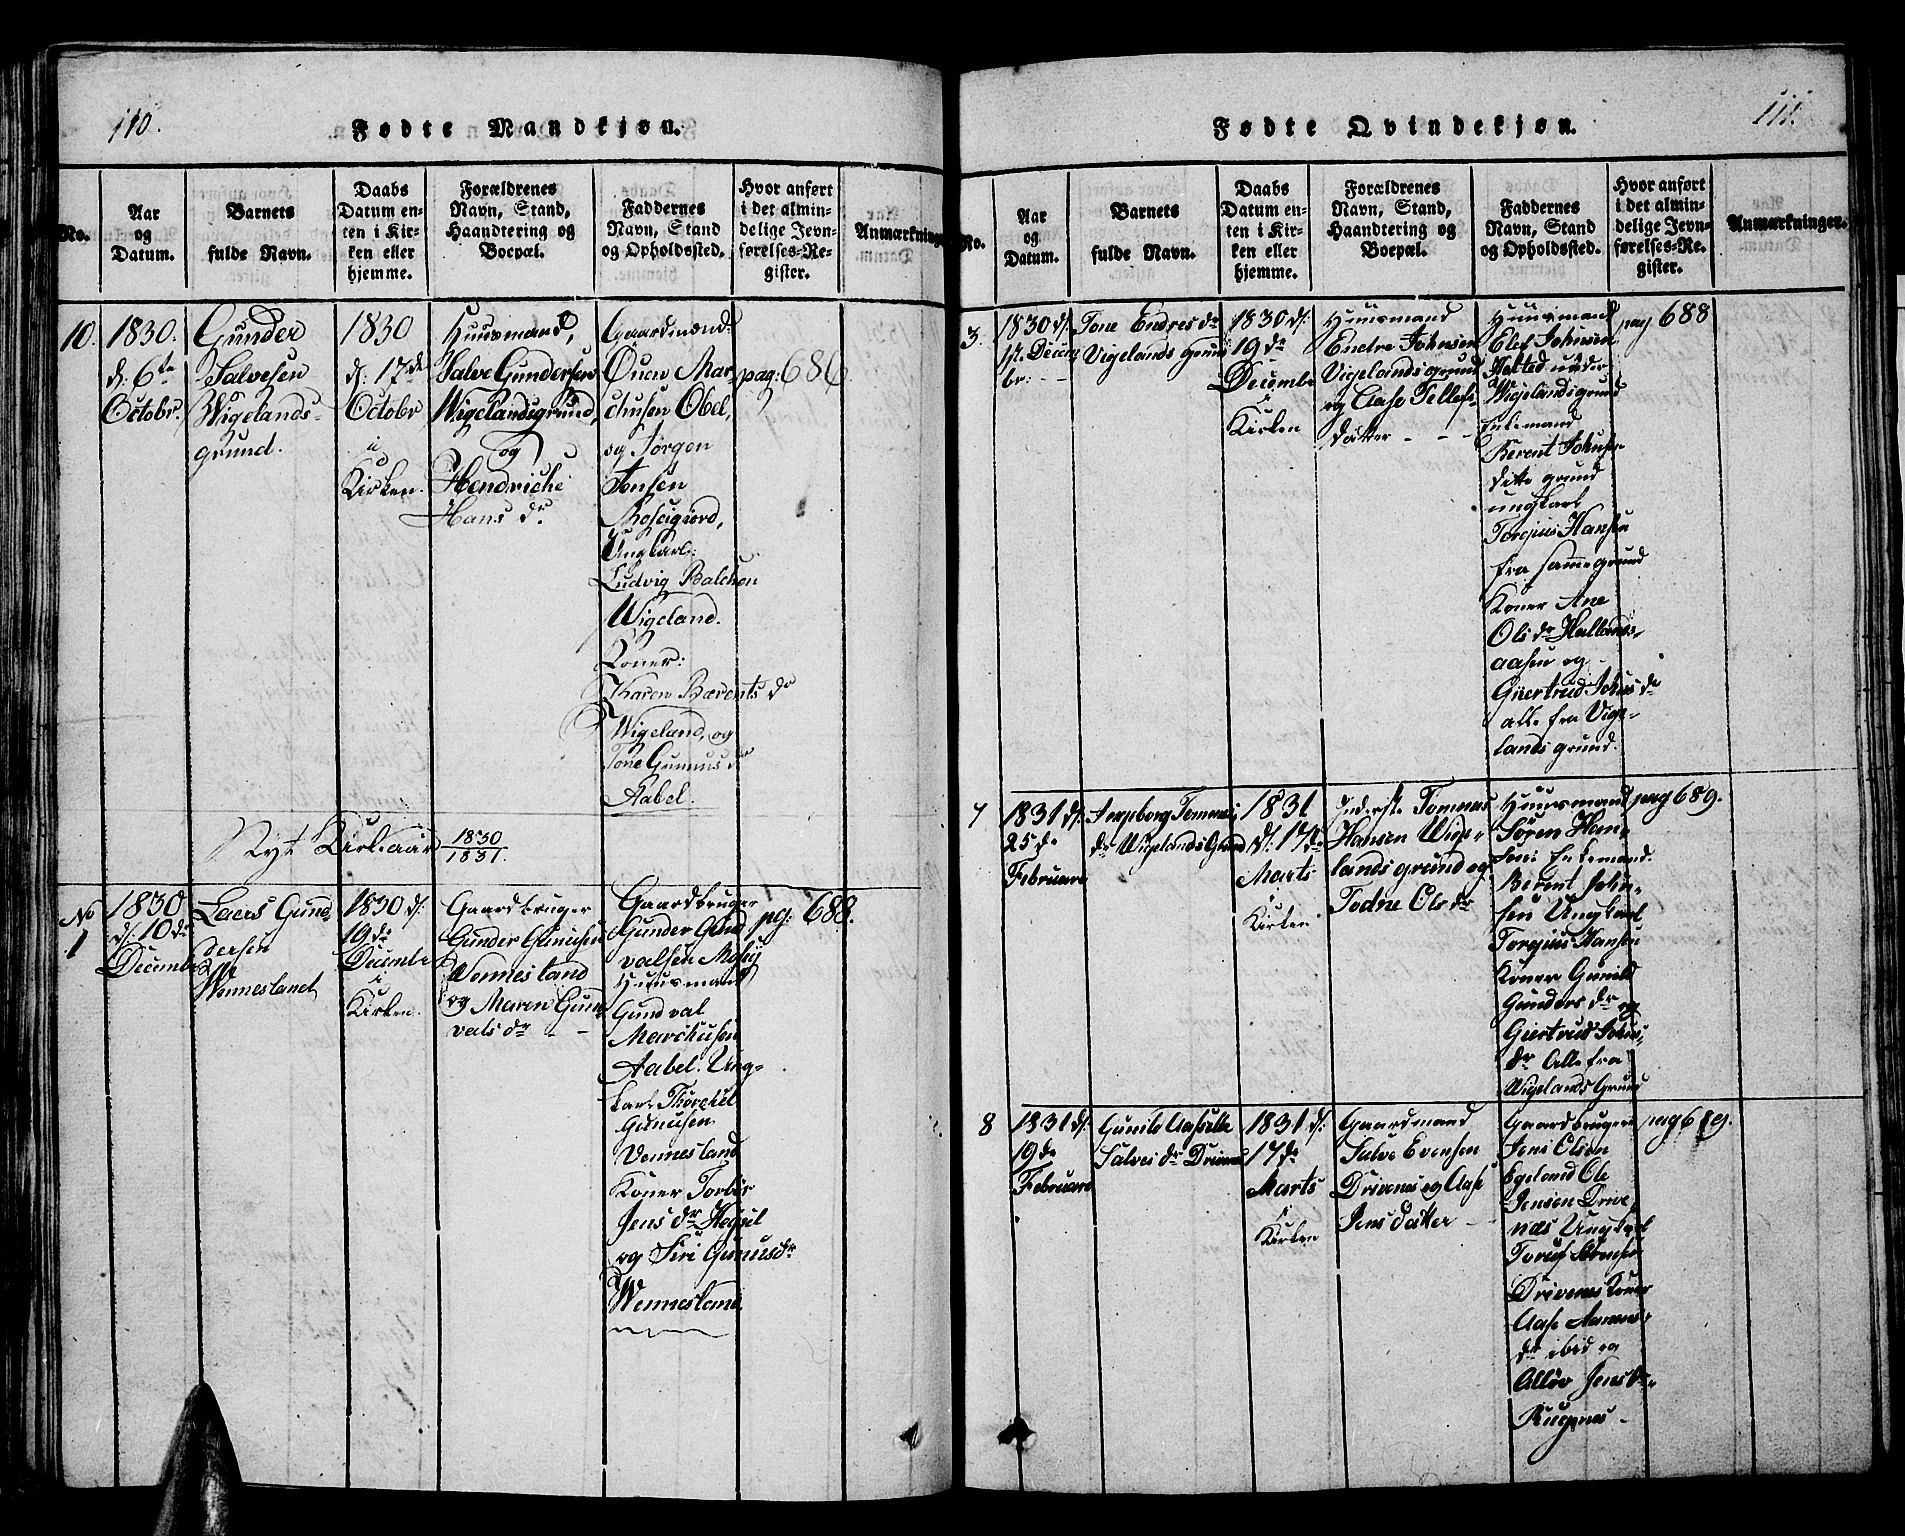 110.
Fødte Mandkjøn.
No.
Aar
og
Datum.
Barnets
fulde Navn.
Daabs
Datum en-
ten i Kir-
ken eller
hjemme.
Forældrenes
Navn, Stand,
Haandtering og
Boepæl.
Faddernes
Navn, Stand
og Opholdssted.
Hvor anført
i det almin-
delige Jevn-
førelses-Re-
gister.
Anmærkninger
10.
1830.
d: 6te
Octobr.
Gunder
Salvesen
Wigelands-
grund.
1830
d: 17de
Octobr
i
Kirken.
Huusmand,
Salve Gundersen
Wigelandsgrund,
og
Hendriche
Hans dr.
Gaardmænd:
Ouen Mar
chusen Obel,
og Jørgen
Jensen
Ungkarl:
Ludvig Balchen
Wigeland.
Koner:
Karen Bærents dr
Wigeland, og
Tone Gumms dr
Aabel.
pag: 686
Nyt Kirkeaar 1830/1831.
No
1
1830
d: 10de
Decembr
Laers Gund
dersen
Wennesland
1830 d:
19de
Decembr
i
Kirken.
Gaardbruger
Gunder Gunusen
Vennesland
og Maren Gund
vals dr
Gaardbruger
Gunder Gund
valsen Moby
Huusmand
Gundval
Marchusen
Aabel. Ung-
karl Thorchel
Gunusen
Vennesland
Koner Torbør
Jens dr Hegsel
og Siri Gunusdr
Wennesland
pg: 688.
111.
Fødte Qvindekjøn.
No.
Aar
og
Datum.
Barnets
fulde Navn.
Daabs
Datum en-
ten i Kir-
ken eller
hjemme.
Forældrenes
Navn, Stand,
Haandtering og
Boepæl.
Faddernes
Navn, Stand
og Opholdssted.
Hvor anført
i det almin-
delige Jevn-
førelses-Re-
gister.
Anmærkninger.
3.
1830 d:
1st. Decem
br:
Tone Endresdr
Vigelands grund
1830 d:
19de
Decembr
i
Kirken
Huusmand
Endre Johnsen
Vigelandsgrund
og Aase Tellefs
datter
Huusmand
Elef Johnsen
under
Wigelandsgrund
Enkemand
Berent Johnsen
ditto grund
ungkarl
Torjuus Hansen
fra samme grund
Koner Ane
Ols dr Hallands-
aasen og
Giertrud Johns dr
alle fra Vige-
lands grund.
pag 688
7
1831 d:
25de
Februarii
Ingeborg Tommes
dr Wigelands Grund
1831
d: 17de
Marts
i
Kirken
Inderste Tommas
Hansen Wige-
landsgrund og
Todne Ols dr
Huusmand
Søren Han-
sen Enkemand
Berent John-
sen Ungkarl
Torjuus Hansen
Koner Gunild
Gunders dr og
Giertrud Johns-
dr Alle fra
Wigelands Grund
pag 689.
8
1831 d:
19de
Februarii
Gunild Aasille
Salves dr Drivenes
1831 d:
17de
Marts
i
Kirken
Gaardmand
Salve Evensen
Drivenes og Aase
Jens datter
Gaardbrugere
Jens Olsen
Egeland Ole
Jensen Drive
næs Ungkarl
Drivenes Koner
Aase
dr ibid og
Jens dr
pag 689.